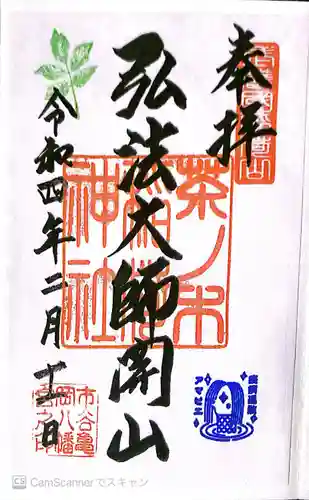 奉拝
弘法大師開山
令和四年二月十一日
茶ノ木
稲荷
神社
市谷亀
岡八幡
宮之印
アマビエ
CS CamScanner でスキャン